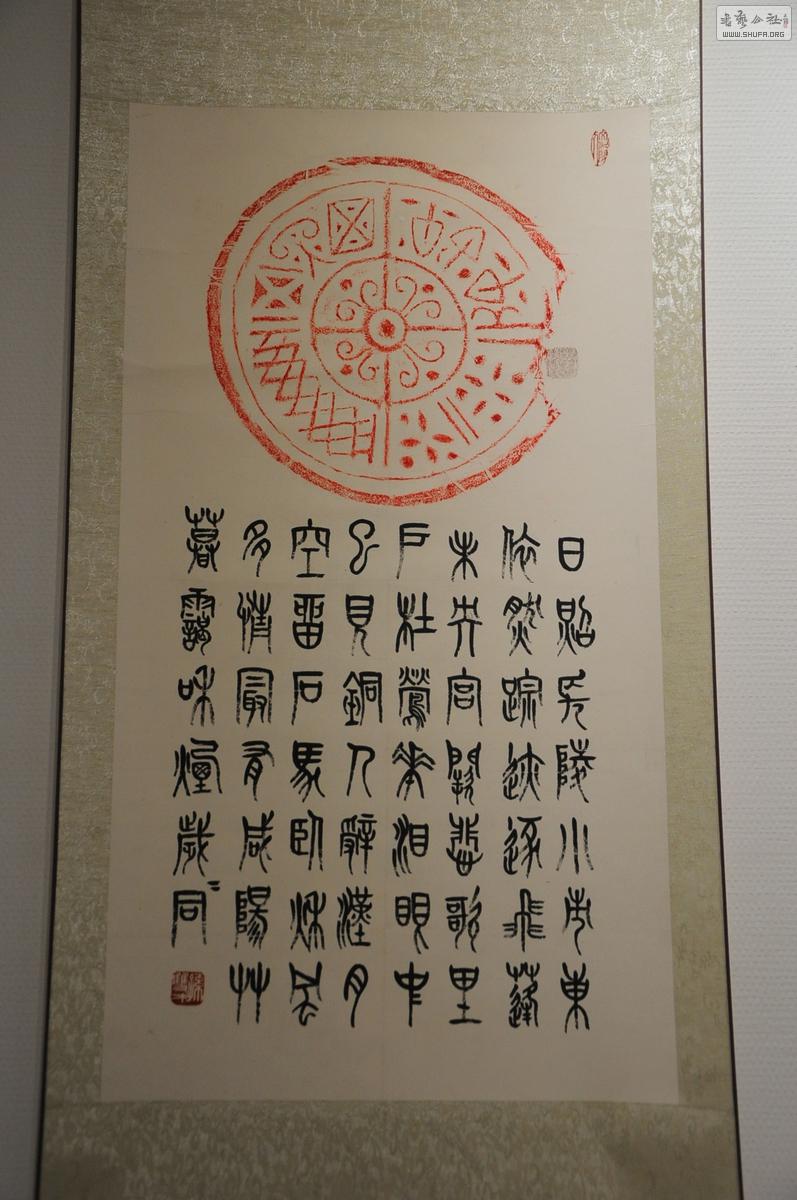 日照長陵小市東
依然踪迹逐飛蓬
未央宮闕悲歌里
戶杜鶯花泪眼中
已見銅人辭漢月
空留石馬臥秋風
多情最有咸陽草
暮靄和煙歲〻同
書藝公社
WWW.SHUFA.ORG